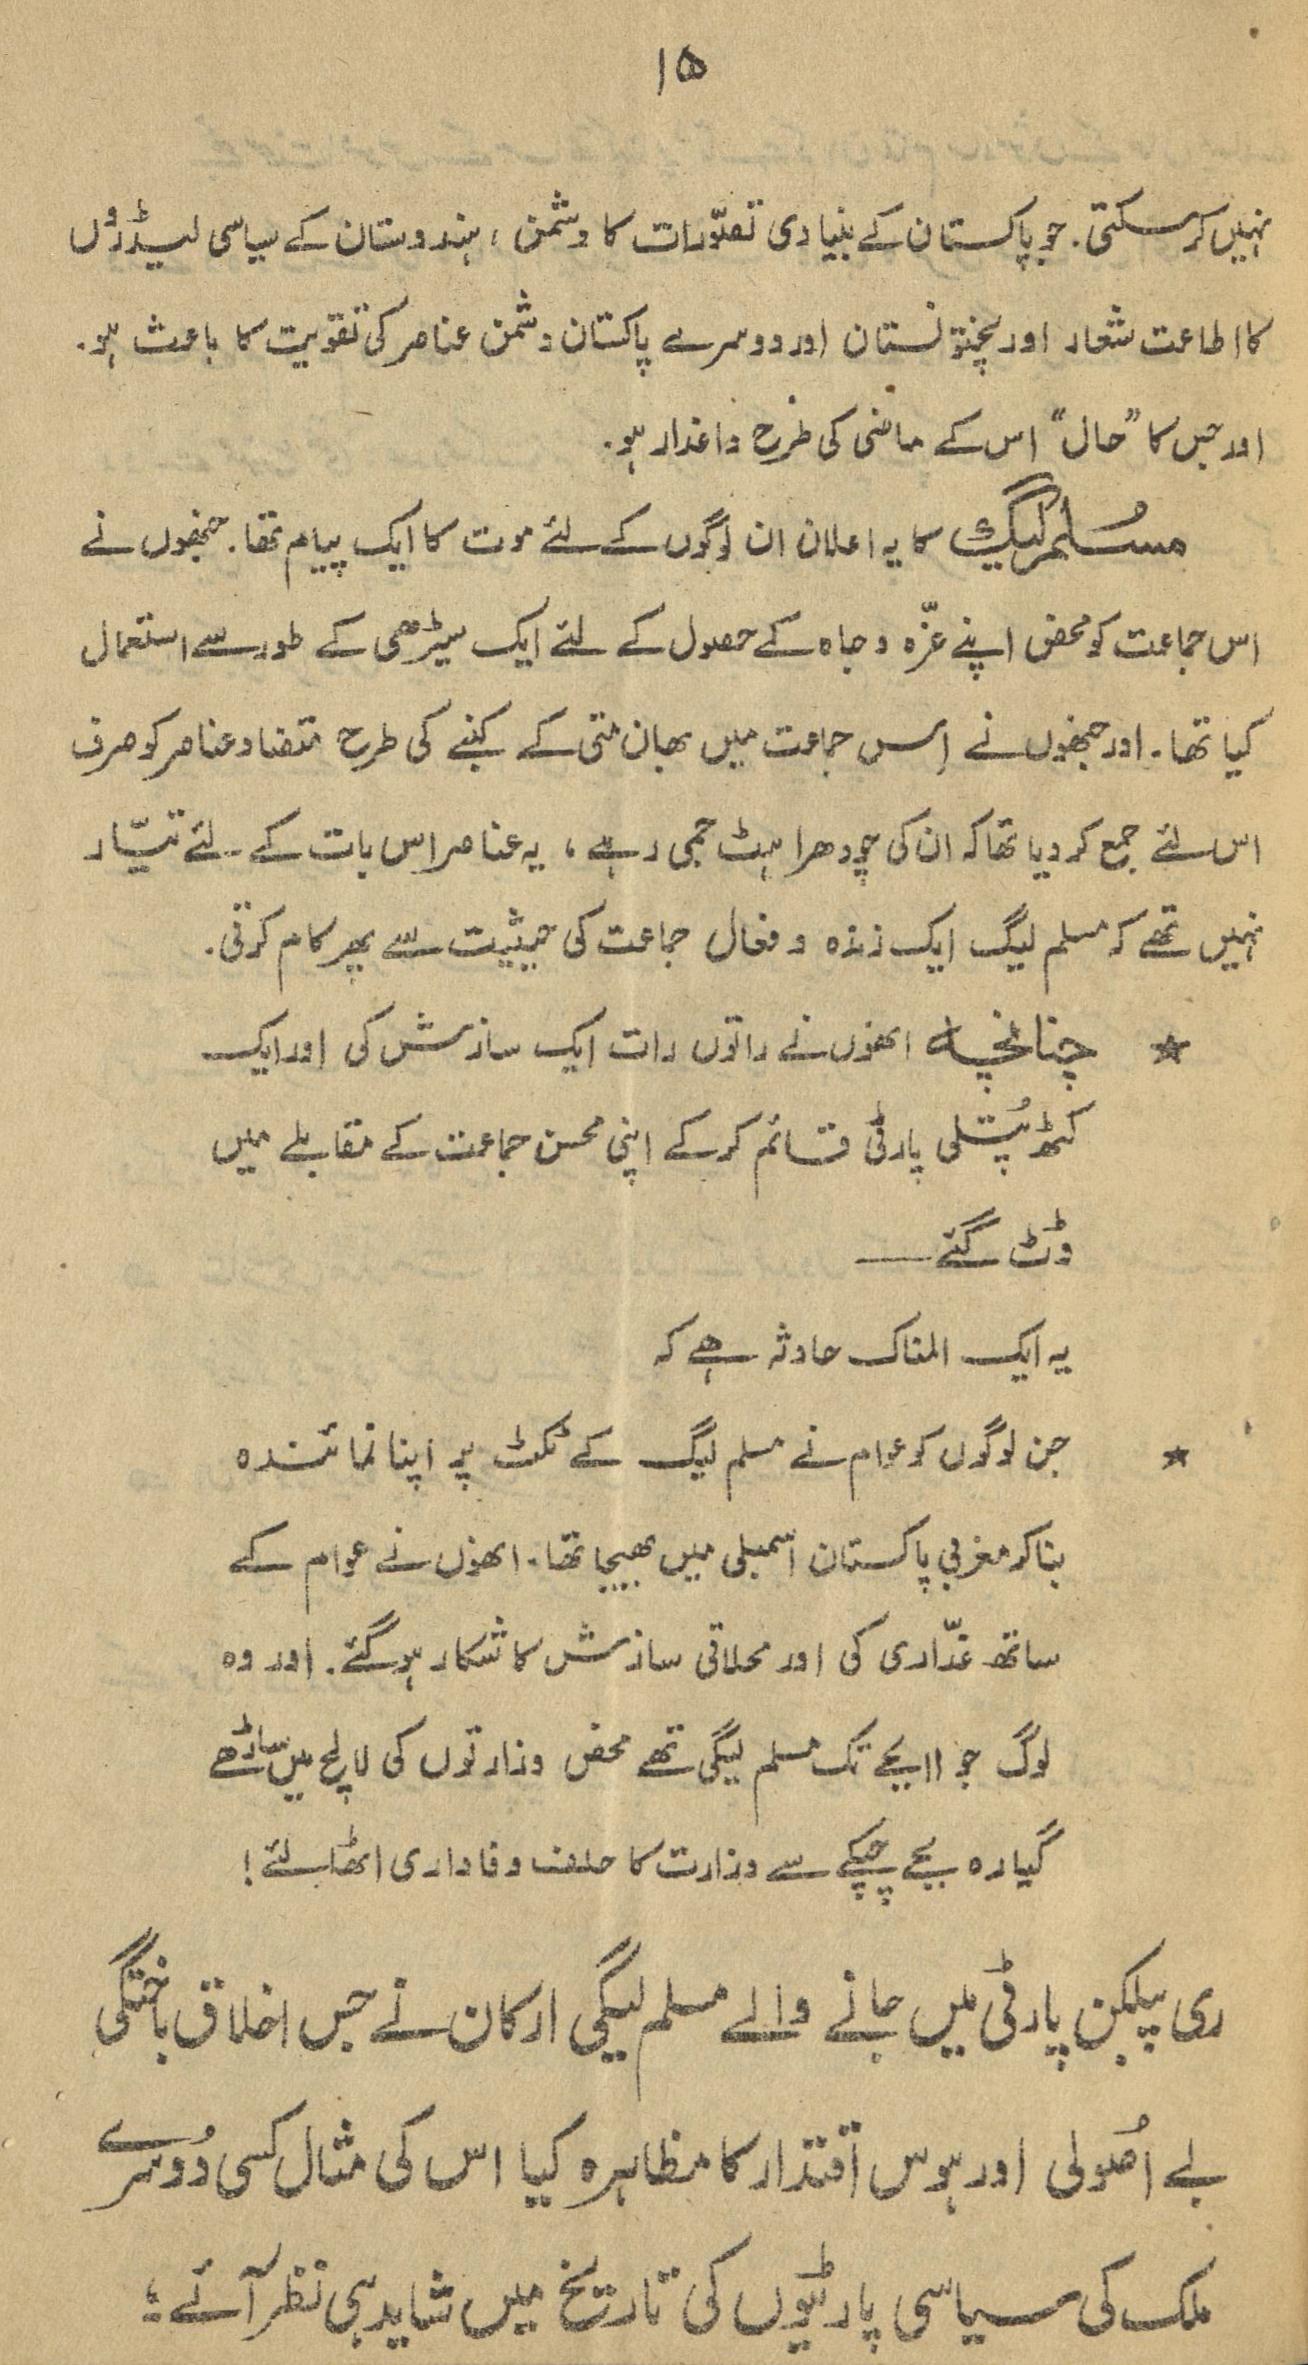 ۱۵
نہیں کرسکتی۔ جو پاکستان کے بنیادی تصوّرات کا دشمن، ہندوستان کے سیاسی لیڈروں
کا اطاعت شعار اور پختونستان اور دوسرے پاکستان دشمن عناصر کی تقویت کا باعث ہو۔
اور جس کا "حال" اس کے ماضی کی طرح داغدار ہو۔
مسُلم لیگ کا یہ اعلان ان لوگوں کے لئے موت کا ایک پیام تھا۔ جنھوں نے
اس جماعت کو محض اپنے عزّہ و جاہ کے حصول کے لئے ایک سیڑھی کے طور سے استعمال
کیا تھا۔ اور جنھوں نے اِس جماعت میں بھان متی کے کنبے کی طرح متضاد عناصر کو صرف
اس لئے جمع کر دیا تھا کہ ان کی چودھراہٹ جمی رہے، یہ عناصر اس بات کے لئے تیّار
نہیں تھے کہ مسلم لیگ ایک زندہ و فعال جماعت کی حیثیت سے پھر کام کرتی۔
★ چنانچہ انھوں نے راتوں رات ایک سازش کی اور ایک
کٹھ پُتلی پارٹی قائم کرکے اپنی محسن جماعت کے مقابلے میں
ڈٹ گئے ــــ
یہ ایک المناک حادثہ ہے کہ
★ جن لوگوں کو عوام نے مسلم لیگ کے ٹکٹ پر اپنا نمائندہ
بنا کر مغربی پاکستان اسمبلی میں بھیجا تھا۔ انھوں نے عوام کے
ساتھ غدّاری کی اور محلاتی سازش کا شکار ہوگئے۔ اور وہ
لوگ جو ۱۱ بجے تک مسلم لیگی تھے محض وزارتوں کی لالچ میں ساڑھے
گیارہ بجے چپکے سے وزارت کا حلف وفاداری اٹھا لئے!
ری پبلکن پارٹی میں جانے والے مسلم لیگی ارکان نے جس اخلاق باختگی
بے اصُولی اور ہوس اقتدار کا مظاہرہ کیا اس کی مثال کسی دُوسرے
ملک کی سیاسی پارٹیوں کی تاریخ میں شاید ہی نظر آئے؛